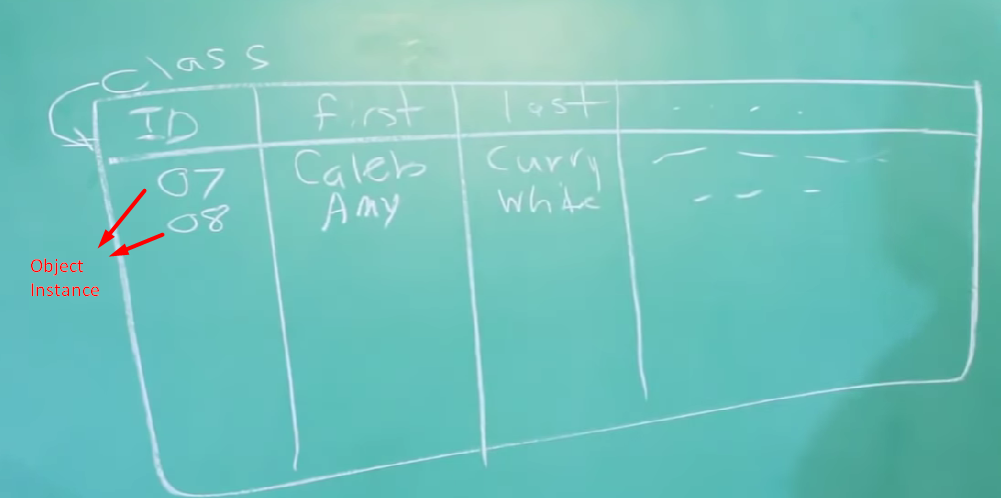 Class
ID first last . . .
07 Caleb Curry
08 Amy White
Object
Instance